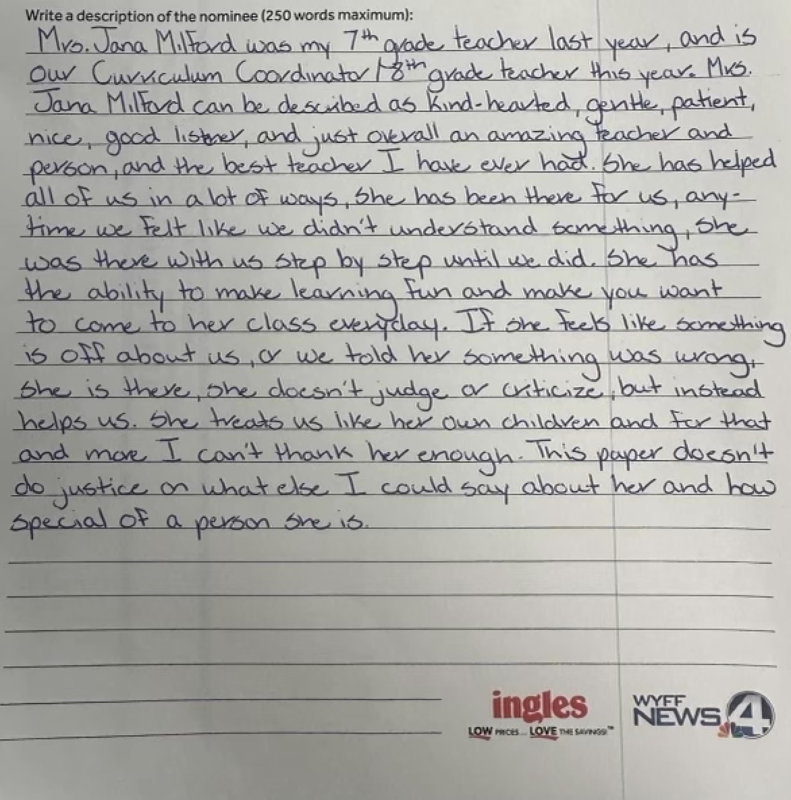 Write a description of the nominee (250 words maximum):
Mrs. Jana Milford was my 7th grade teacher last year, and is
our Curriculum Coordinator/8th grade teacher this year. Mrs.
Jana Milford can be described as kind-hearted, gentle, patient,
nice, good listner, and just overall an amazing teacher and
person, and the best teacher I have ever had. She has helped
all of us in a lot of ways, She has been there for us, any-
time we felt like we didn't understand something, she
was there with us step by step until we did. She has
the ability to make learning fun and make you want
to come to her class everyday. If she feels like something
is off about us, or we told her something was wrong,
she is there, she doesn't judge or criticize, but instead
helps us. She treats us like her own children and for that
and more I can't thank her enough. This paper doesn't
do justice on what else I could say about her and how
special of a person she is.
ingles
LOW PRICES... LOVE THE SAVINGS!™
WYFF
NEWS 4